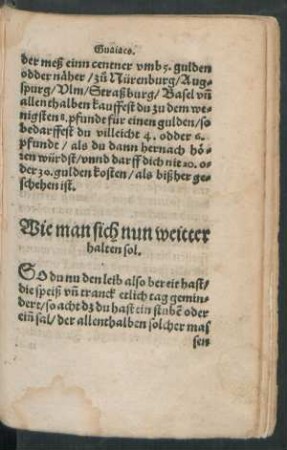 Guaiaco.
der meß einn centner vmb 5. gulden
odder näher / zů Nürenburg / Aug-
spurg / Vlm / Straßburg / Basel vñ
allenthalben kauffest du zu dem we-
nigsten 8. pfundt fur einen gulden / so
bedarffest du villeicht 4. odder 6.
pfundt / als du dann hernach hö-
ren würdst / vnnd darff dich nit 20. o-
der 30. gulden kosten / als bißher ge-
schehen ist.
Wie man sich nun weitter
halten sol.
SO du nu den leib also bereit hast /
die speiß vñ tranck etlich tag gemin-
dert / so acht dz du hast ein stubẽ oder
ein sal / der allenthalben solcher mas
sen